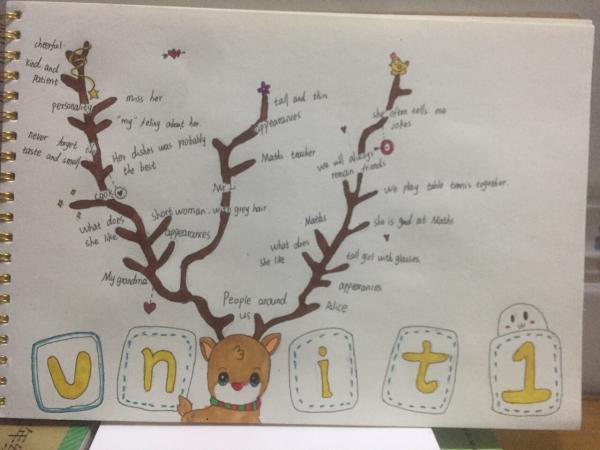 cheerful
kind and
patient
personality
miss her
"my" feling about her
never forget
taste and smell
Her dishes was probably
the best
cook
what does
she like
short woman. with grey hair
appearances
My grandma
tall and thin
appearances
Maths teacher
Mr
she often tells me
jokes
we will always
remain friends
We play table tennis together.
Maths
she is good at Maths
what does
she like
tall girl with glasses.
appearances
Alice
People around
us
unit1